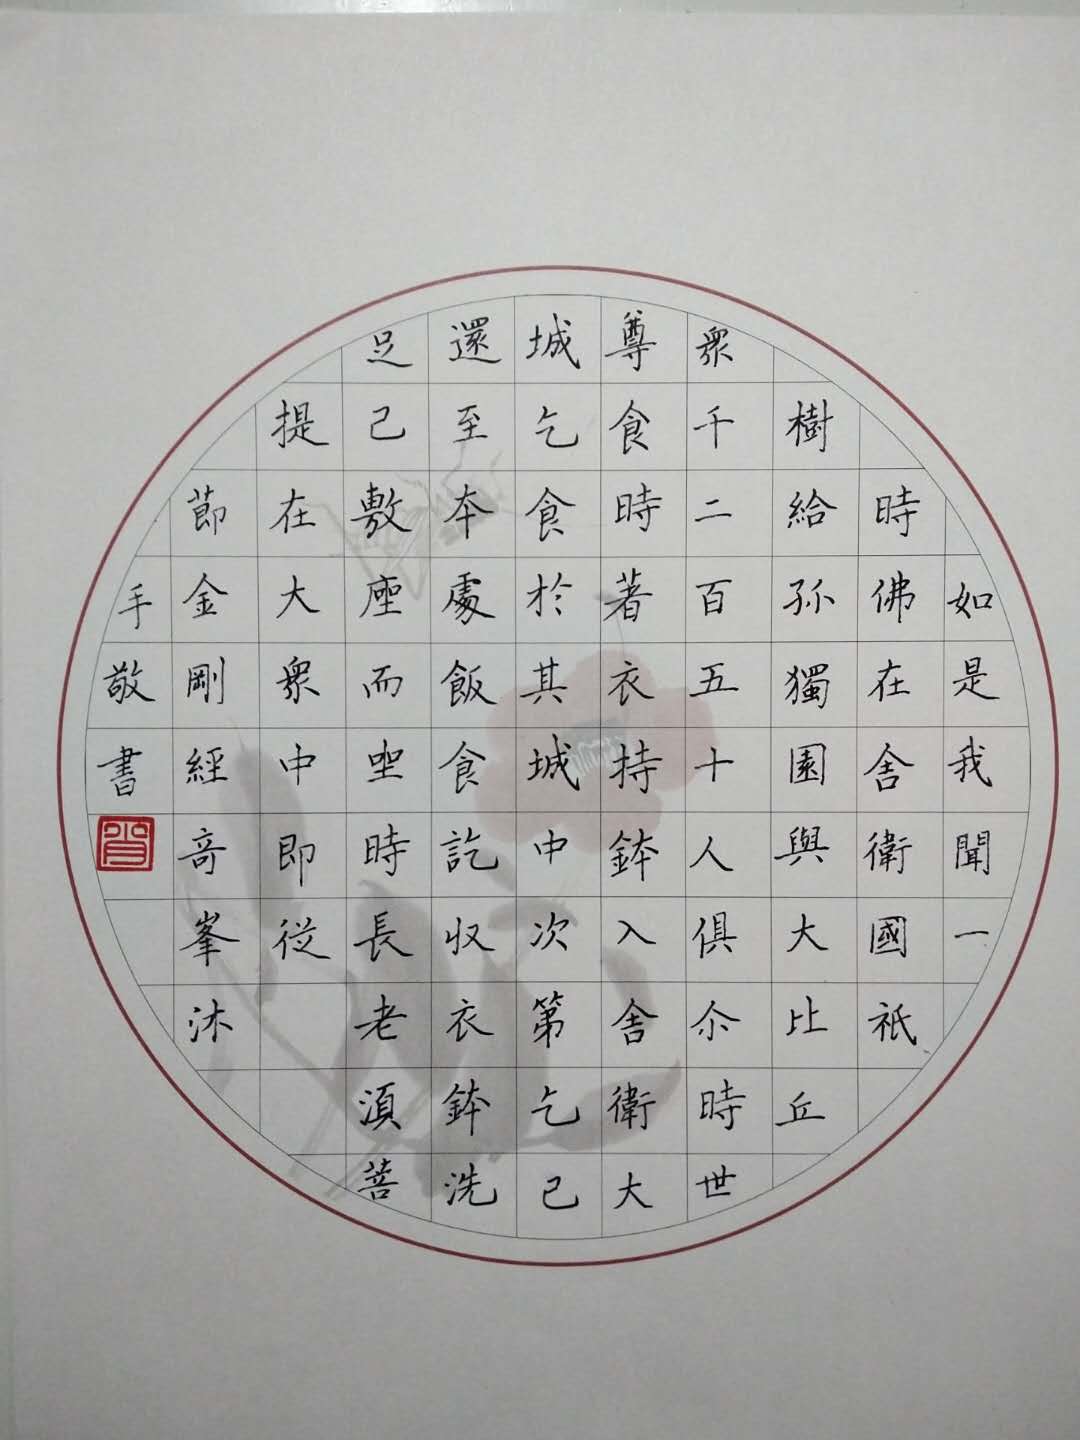 如是我聞一
時佛在舍衛國祇
樹給孤獨園與大比丘
眾千二百五十人俱尒時世
尊食時著衣持鉢入舍衛大
城乞食於其城中次第乞已
還至本處飯食訖收衣鉢洗
足已敷座而坐時長老湏菩
提在大眾中即從
節金剛經奇峯沐
手敬書